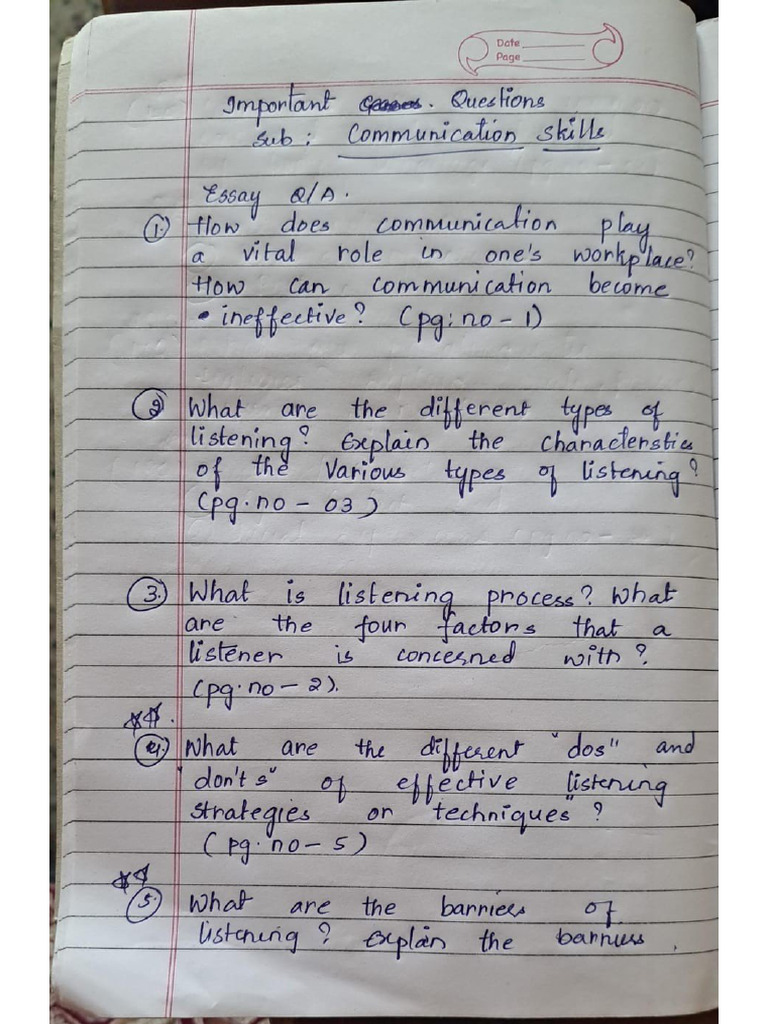 Date
Page
Important . Questions
Sub : Communication Skills
Essay Q/A .
1. How does communication play
a vital role in one's workplace?
How can communication become
• ineffective? (pg: no - 1)
2 What are the different types of
listening? Explain the characterstics
of the various types of listening?
(pg. no - 03)
3. What is listening process? What
are the four factors that a
listener is concerned with?
(pg. no - 2).
☆☆.
4. What are the different "dos" and
"don't s" of effective listening
strategies or techniques"?
( pg. no - 5)
☆☆
5. What are the barriers of
listening? Explain the barriers .